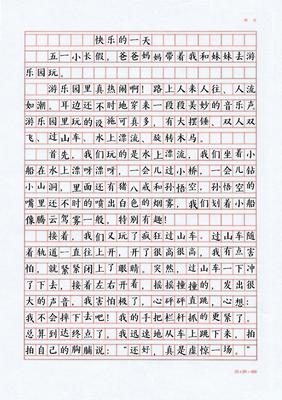 快乐的一天
五一小长假，爸爸妈妈带着我和妹妹去游
乐园玩。
游乐园里真热闹啊！路上人来人往，人流
如潮。耳边还不时地穿来一段段美妙的音乐声
游乐园里玩的设施可真多，有大摆锤、双人双
飞、过山车、水上漂流，旋转木马。
首先，我们玩的是水上漂流，我们坐着小
船在水上漂呀漂呀，一会几过小桥，一会几钻
小山洞，里面还有猪八戒和孙悟空，孙悟空的
嘴里还不时的喷出白色的烟雾，我们划着小船
像腾云驾雾一般，特别有趣！
接着，我们又玩了疯狂过山车。过山车随
着轨道一直往上开，开了很高很高，我有点害
怕，就紧紧闭上了眼睛。突然，过山车一下冲
了下去，接着左右开着，摇摇撞撞的，发出很
大的声音，我害怕极了，心砰砰直跳，心想：
我不会摔下去吧！我的手把栏杆抓的更紧了。
总算到达终点了，我迅速地从车上跳下来，拍
拍自己的胸脯说：“还好，真是虚惊一场。”